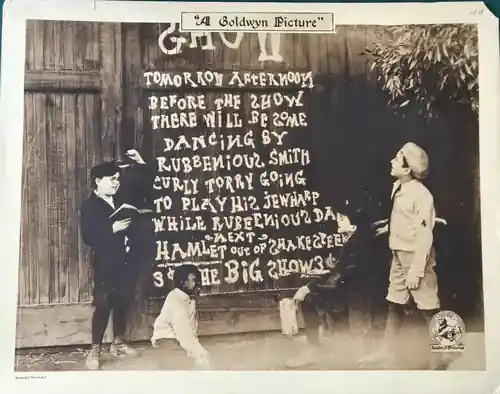 "A Goldwyn Picture"
SHOW
TOMORROW AFTERNOON
BEFORE THE SHOW
THERE WILL BE SOME
DANCING BY
RUBBENIOUS SMITH
CURLY TORRY GOING
TO PLAY HIS JEWHARP
WHILE RUBEENIOUS DA
-NEXT-
HAMLET OUT OF SHAKESPEER
3¢ THE BIG SHOW 3¢